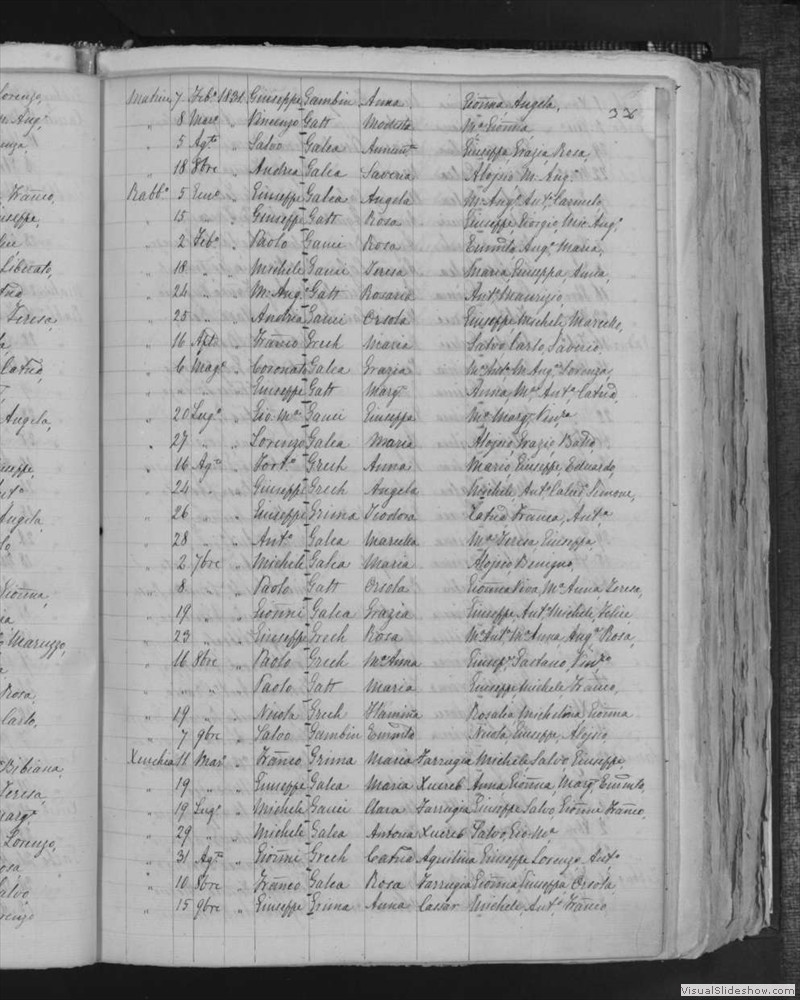 Lorenzo,
Franco,
Giuseppe,
Liberato,
Teresa,
Angela,
Angela
Maruzzo,
Rosa,
Carlo,
Bibiana,
Teresa,
Marg.ª
Lorenzo,
Rosa
Salvo
Lorenzo
7 Feb.º 1831 Giuseppe Gambin Anna Gionna Angela,
„ 8 Mar.º „ Vincenzo Gatt Modesta M.ª Gionna,
„ 5 Ag.to „ Salvo Galea Annunt.ª Giuseppa, Grazia Rosa,
„ 18 8bre „ Andrea Galea Saveria Aloysio M. Ang.º
Rabb.º 5 Gen.º „ Giuseppe Galea Angela M. Ang.º Ant.º Carmelo,
„ 15 „ „ Giuseppe Gatt Rosa Giuseppe Giorgio, Mic. Ang.º
„ 2 Feb.º „ Paolo Gauci Rosa Ang.º Maria,
„ 18 „ „ Michele Gauci Teresa Maria, Giuseppa, Anna,
„ 24 „ „ M. Ang.º Gatt Rosaria Ant.º Maurizio,
„ 25 „ „ Andrea Gauci Orsola Giuseppe Michele Marcello,
„ 16 Apl.e „ Franco Grech Maria Salvo, Carlo, Saverio,
„ 6 Mag.º „ Coronato Galea Grazia M.ª Ant.ª M. Ang.º Lorenza,
„ „ „ Giuseppe Gatt Marg.ª Anna, M.ª Ant.ª Catna,
„ 20 Lug.º „ Gio. M.ª Gauci Giuseppa M.ª Marg.ª Vin.za
„ 27 „ „ Lorenzo Galea Maria Aloysio, Grazio
„ 16 Ag.to „ Port.º Grech Anna Mario, Giuseppe, Eduardo,
„ 24 „ „ Giuseppe Grech Angela Michele, Ant.º Simone,
„ 26 „ „ Giuseppe Grima Teodora Catna Franca, Ant.ª
„ 28 „ „ Ant.º Galea Marcella M.ª Teresa, Giuseppa,
„ 2 7bre „ Michele Galea Maria Aloysio Benigno,
„ 8 „ „ Paolo Gatt Orsola Gionna Viva, M.ª Anna, Teresa,
„ 19 „ „ Gionni Galea Grazia Giuseppe Ant.º Michele, Felice
„ 23 „ „ Giuseppe Grech Rosa M.ª Ant.ª M.ª Anna, Ang.ª Rosa,
„ 16 8bre „ Paolo Grech M.ª Anna Gaetano, Vin.zo
„ „ „ Paolo Gatt Maria Giuseppe, Michele Franco,
„ 19 „ „ Nicola Grech Flaminia Rosalia, Michelina, Gionna
„ 7 9bre „ Salvo Gambin Nicola, Giuseppe, Aloysio
11 Mar.º „ Franco Grima Maria Farrugia Michele Salvo, Giuseppe,
„ 19 „ „ Giuseppe Galea Maria Xuereb Anna Gionna, Marg.ª
„ 19 Lug.º „ Michele Gauci Clara Farrugia Giuseppe Salvo, Gionni Franco,
„ 29 „ „ Michele Galea Antona Xuereb Salvo, Gio. M.ª
„ 31 Ag.to „ Gionni Grech Catna Aquilina Giuseppe Lorenzo, Ant.º
„ 10 8bre „ Franco Galea Rosa Farrugia Gionna, Giuseppa Orsola
„ 15 9bre „ Giuseppe Grima Anna Cassar Michele, Ant.º Franco
VisualSlideshow.com